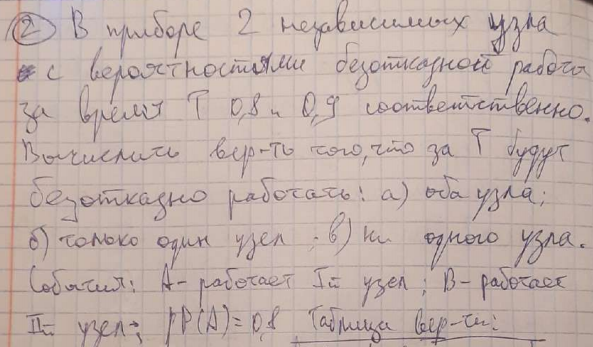 ② В приборе 2 независимых узла
с вероятностями безотказной работы
за время T 0,8 и 0,9 соответственно.
Вычислить вер-ть того, что за T будут
безотказно работать: а) оба узла;
б) только один узел; в) ни одного узла.
События: A - работает Iй узел; B - работает
IIй узел; P(A)=0,8 Таблица вер-ти: